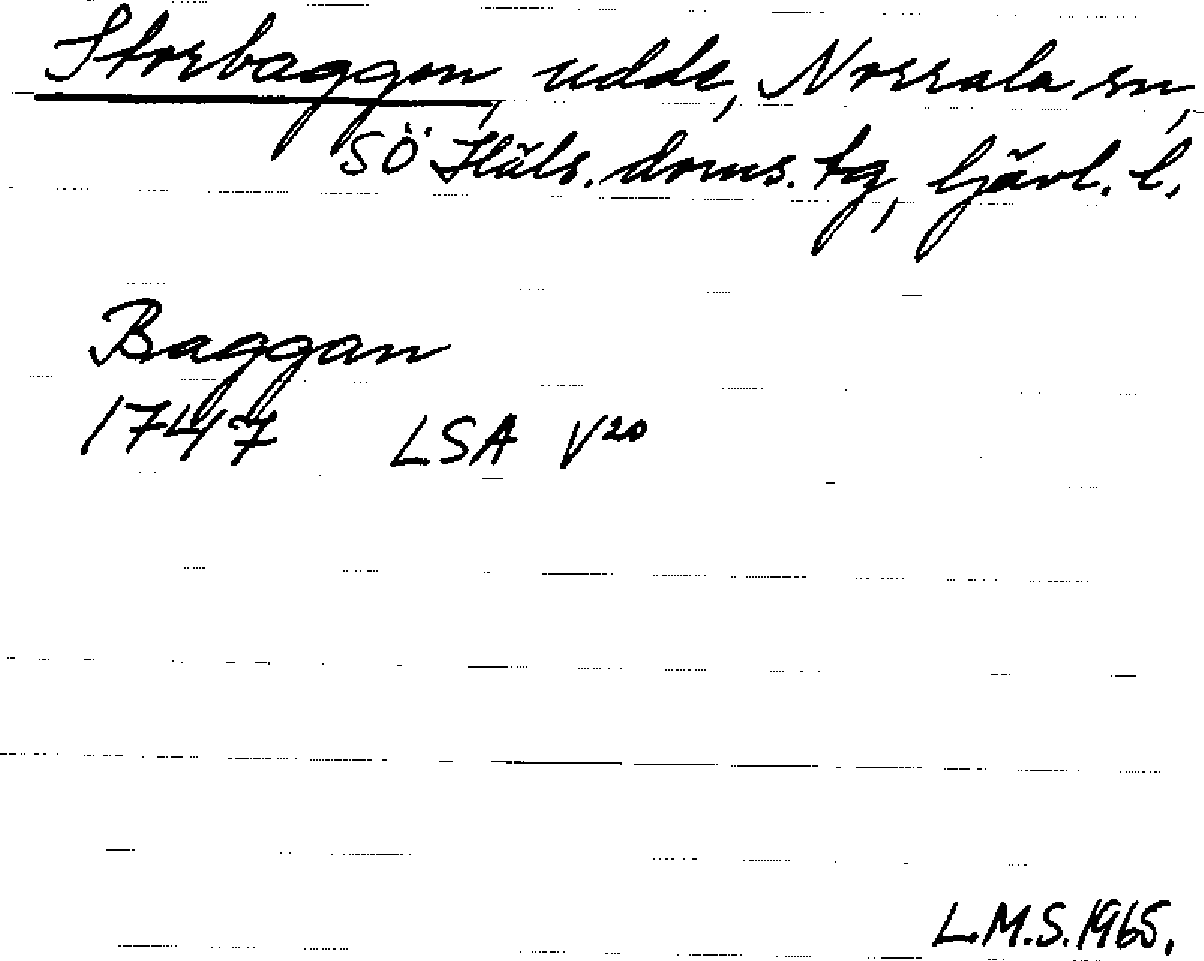 Storbaggen, udde, Norrala sn,
SÖ Häls. doms. tg, Gävl. l.
Baggan
1747 LSA V20
L.M.S. 1965.